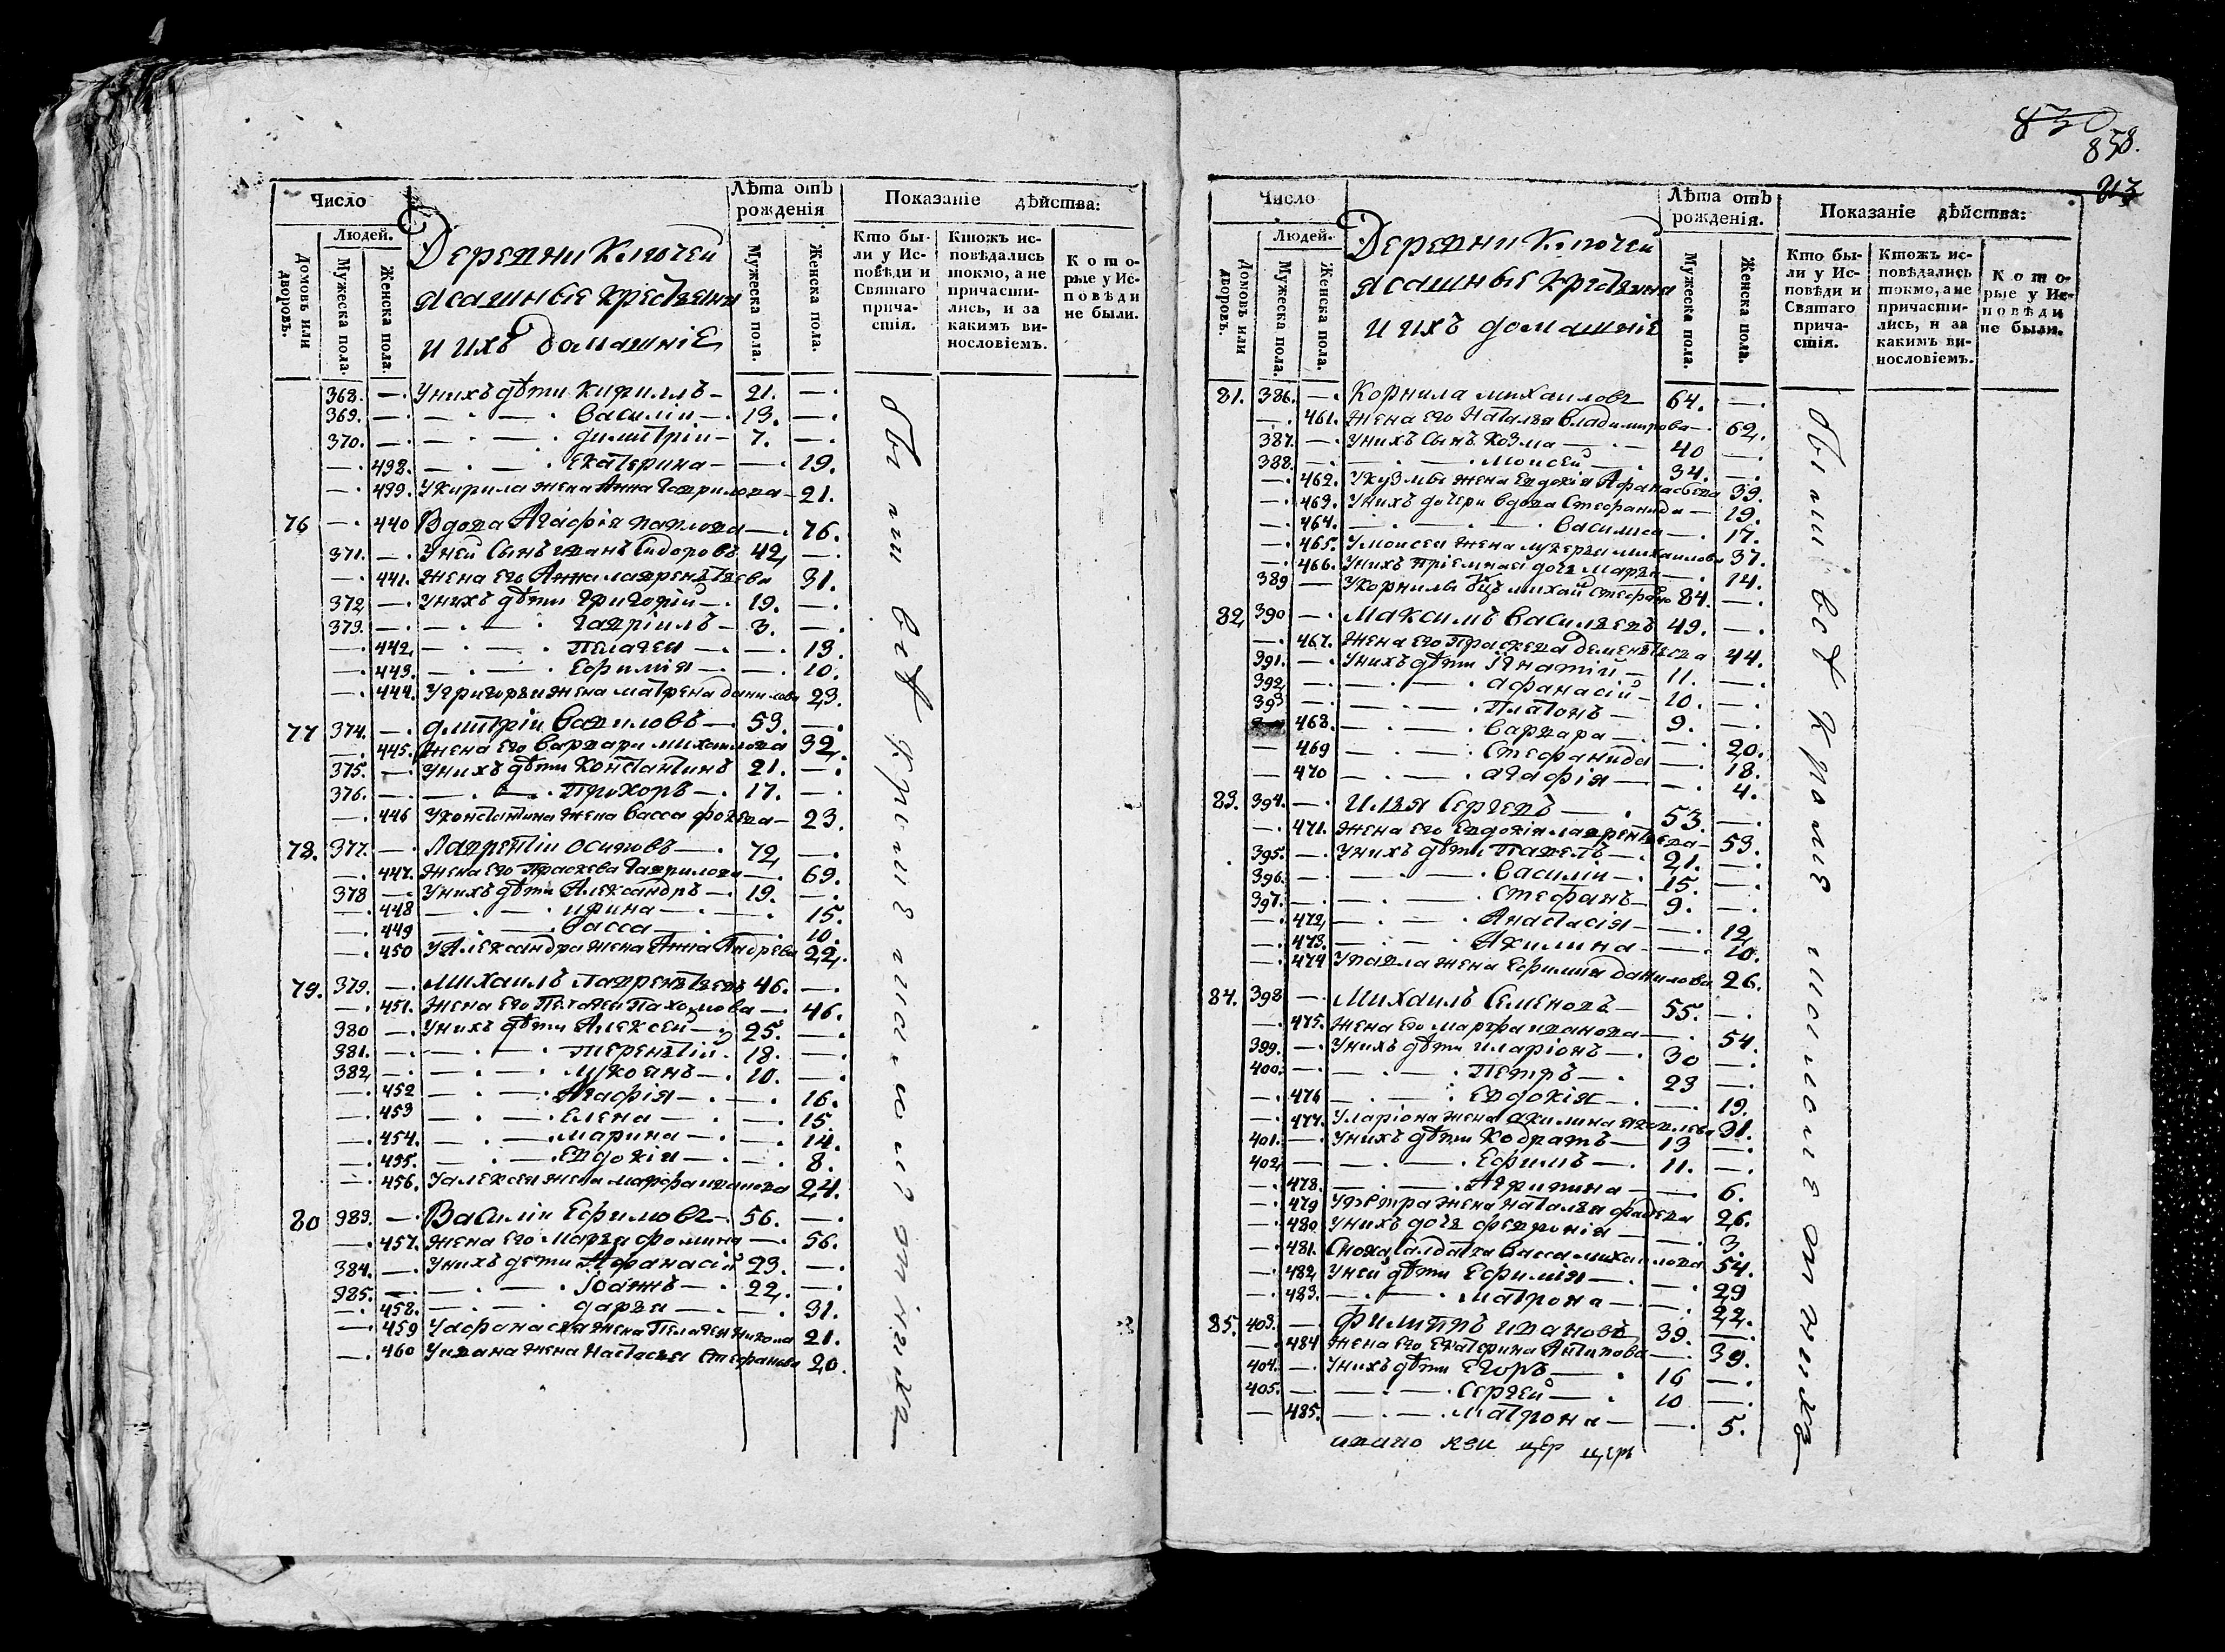 Число
Людей.
Домовъ или дворовъ.
Мужеска пола.
Женска пола.
Деревни Ключей
ясашные крестьяня
и ихъ домашніе
Лѣта отъ рожденія
Мужеска пола.
Женска пола.
Показаніе дѣйства:
Кто были у Исповѣди и Святаго причастія.
Ктожъ исповѣдались токмо, а не причастились, и за какимъ винословіемъ.
Которые у Исповѣди не были.
368. — Унихъ дѣти Кирилъ — 21. —
369. — — Василіи — 13. —
370. — — димитріи — 7. —
— 438. — Екатерина — — 19.
— 439. Укирила жена Анна Гаврилова — 21.
76 — 440 Вдова Агафія павлова — 76.
371. — Уней Сынъ иванъ Сидоровъ 42, —
— 441. Жена его Анна лаврентьева 31.
372 — Унихъ дѣти Григорій — 19. —
373. — — Гавріилъ — 3. —
— 442, — Пелагея — — 13.
— 443. — Ефимія — — 10.
— 444. Угригорья жена матрена данилова 23.
77 374. — дмитріи Вавиловъ — 53. —
— 445. Жена его Варвара михаилова 32.
375. — Унихъ дѣти Константинъ 21. —
376. — — Прохоръ — 17. —
— 446 Уконстантина жена Васса фокева — 23.
78. 377. — Лаврентіи осиповъ — 72, —
— 447. Жена его Праскева Гаврилова — 69.
378 — Унихъ дѣти Александръ — 19. —
— 448 — ирина — — 15.
— 449 — Васса — — 10.
— 450 УАлександра жена Анна Андрева 22,
79. 379. — Михаилъ Лаврентьевъ 46. —
— 451. Жена его Пелагея Пахомова — 46.
380 — Унихъ дѣти Алексеи — 25. —
381. — — терентій — 18. —
382, — — лукоянъ — 10. —
— 452 — Агафія — — 16.
— 453 — Елена — — 15.
— 454. — марина — — 14.
— 455. — Евдокія — — 8.
— 456. Уалексея жена марфа иванова 24.
80 383. — Василіи Ефимовъ — 56. —
— 457. Жена его Марья фомина — 56.
384. — Унихъ дети Афанасіи 23. —
385. — — Іоаннъ — 22, —
— 458. — дарья — — 31.
— 459 Уафанасья жена Пелагея никона 21.
— 460 Уивана жена Настасья Стефанова 20.
были всѣ кроме исповедника
850
858.
213
Число
Людей.
Домовъ или дворовъ.
Мужеска пола.
Женска пола.
Деревни Ключей
ясашные крестьяня
и ихъ домашніе
Лѣта отъ рожденія.
Мужеска пола.
Женска пола.
Показаніе дѣйства:
Кто были у Исповѣди и Святаго причастія.
Ктожъ исповѣдались токмо, а не причастились, и за какимъ винословіемъ.
Которые у Исповѣди не были.
81. 386. — Корнила михаиловъ 64. —
— 461. Жена его Наталья Владимирова — 62.
387. — Унихъ Сынъ Козма — 40 —
388. — — Моисей — 34. —
— 462. Укузмы жена Евдокія Афанасьева 39.
— 463. Унихъ дочери вдова Стефанида — 19.
— 464. — Василиса — 17.
— 465. Умоисея жена лукерья михаилова 37.
— 466. Унихъ Пріемная дочь Марья — 14.
389 — Укорнилы 84. —
82, 390 — Максимъ Васильевъ 49. —
— 467. Жена его Праскева дементьева 44.
391. — Унихъ дѣти Игнатій — 11. —
392, — — афанасій — 10. —
393 — — Платонъ — 9. —
468. — Варвара — — 20.
— 469 — Стефанида — 18.
— 470 — агафія — — 4.
83. 394. — Илья Сергеевъ — 53. —
— 471. Жена его Евдокія лаврентьева — 53.
395. — Унихъ дѣти Павелъ — 21. —
396. — — Василіи — 15. —
397. — — Стефанъ — 9. —
— 472, — Анастасія — — 12,
— 473. — Акилина — — 10.
— 474 Упавла жена Ефимия данилова 26.
84. 398 — Михаилъ Семеновъ — 55. —
— 475. Жена его марфа иванова — 54.
399. — Унихъ дѣти иларіонъ — 30 —
400. — — Петръ — 23 —
— 476 — Евдокія — — 19.
— 477. Уларіона жена акилина яковлева 31.
401. — Унихъ дѣти Кодратъ — 13 —
402, — — Ефимъ — 11. —
— 478. — Агрипина — — 6.
— 479 Упетра жена Наталья фадева 26.
— 480 Унихъ дочь февронія — — 3.
— 481. Сноха Салдатка Васса михаилова 54.
— 482, Уней дѣти Ефимія — — 29
— 483. — Матрона — — 22.
85. 403. — Филиппъ ивановъ 39. —
— 484 Жена его Екатерина Антипова — 39.
404. — Унихъ дѣти Егоръ — 16 —
405. — — Сергей — 10 —
— 485. — Матрона — — 5.
были всѣ кроме исповедника